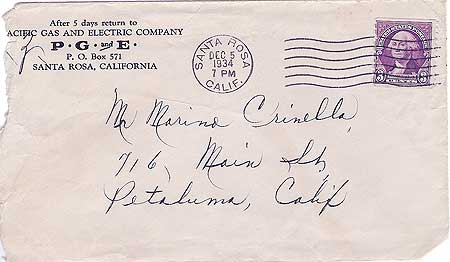 After 5 days return to
PACIFIC GAS AND ELECTRIC COMPANY
P·G and E·
P. O. Box 571
SANTA ROSA, CALIFORNIA
SANTA ROSA
DEC 5
1934
7 PM
CALIF.
3 3
Mr Marino Crinella,
716, Main St,
Petaluma, Calif